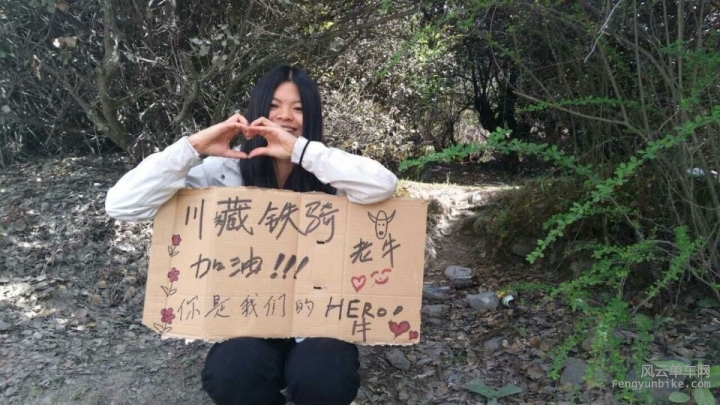 川藏铁骑
加油!!!
老牛
你是我们的HERO!
牛
风云单车网
Fengyunbike.com